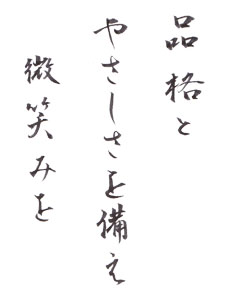 品格と
やさしさを備え
微笑みを